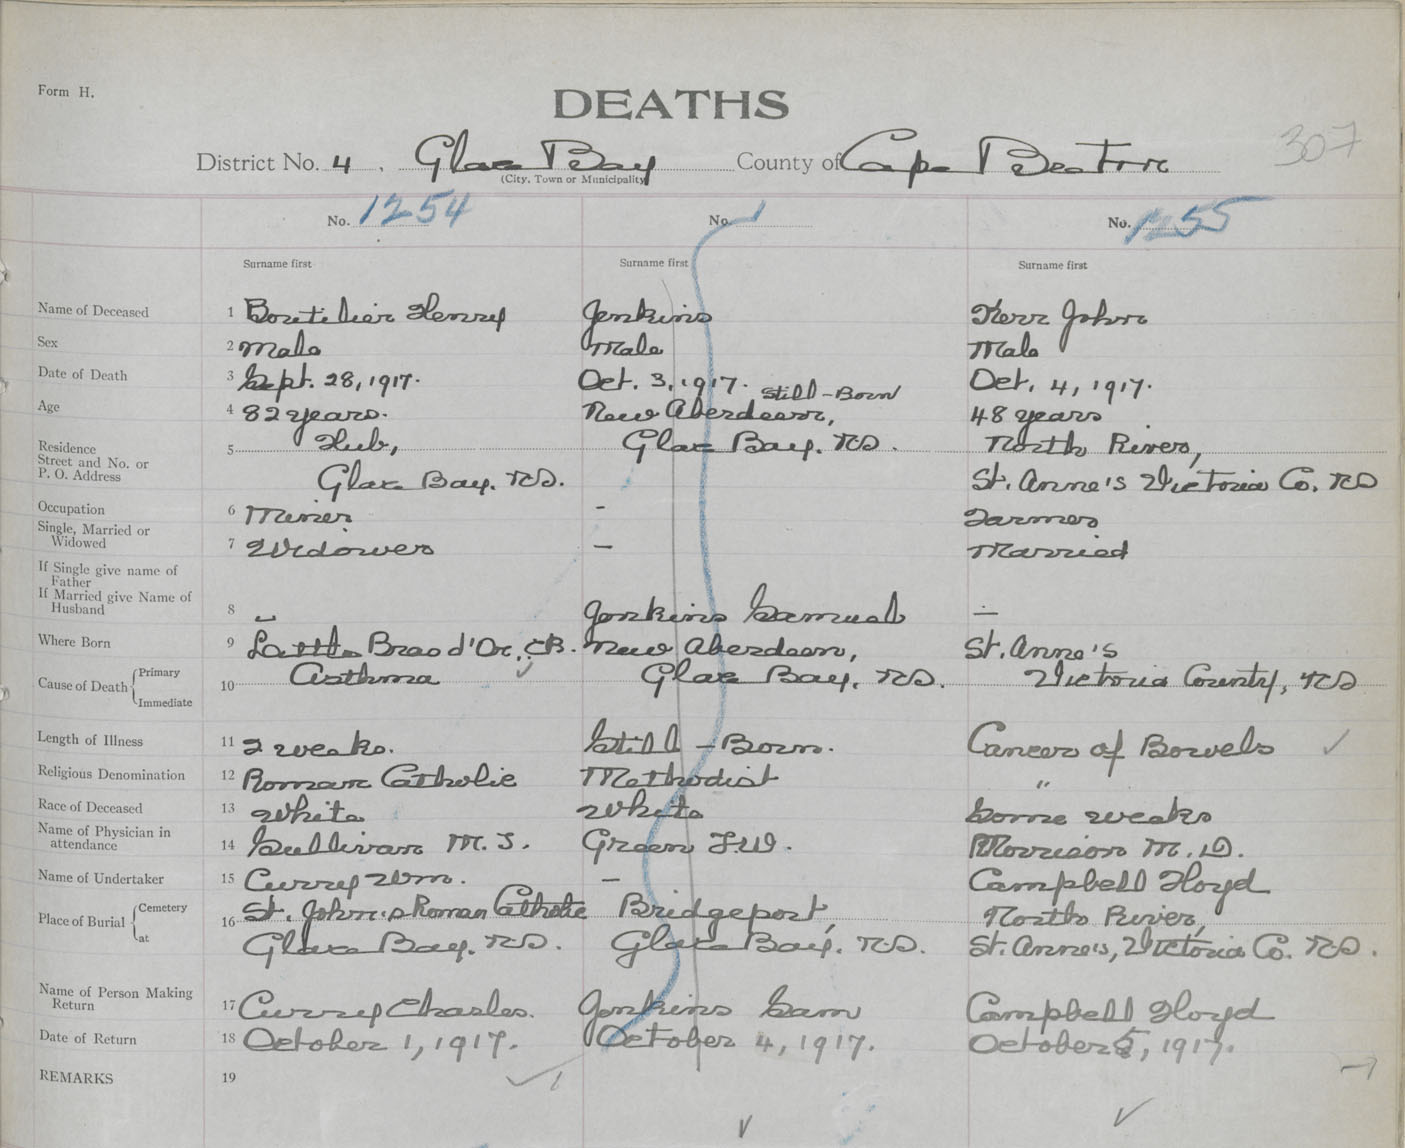 Form H.
DEATHS
307
District No. 4, Glace Bay County of Cape Breton
(City, Town or Municipality)
No. 1254 No. 1 No. 1255
Surname first Surname first Surname first
Name of Deceased 1 Boutilier Henry Jenkins Kerr John
Sex 2 Male Male Male
Date of Death 3 Sept. 28, 1917. Oct. 3, 1917. Oct. 4, 1917.
Still-Born
Age 4 82 years. New Aberdeen, 48 years
Residence
Street and No. or
P. O. Address
5 Hub, Glace Bay. NS. North River,
Glace Bay. NS. St. Anne's Victoria Co. NS
Occupation 6 Miner - Farmer
Single, Married or
Widowed 7 Widower - Married
If Single give name of
Father
If Married give Name of
Husband 8 - Jenkins Samuel -
Where Born 9 Little Bras d'Or, CB. New Aberdeen, St. Anne's
Cause of Death Primary
Immediate
10 Asthma Glace Bay. NS. Victoria County, NS
Length of Illness 11 2 weeks. Still-Born. Cancer of Bowels
Religious Denomination 12 Roman Catholic Methodist "
Race of Deceased 13 White White Some weeks
Name of Physician in
attendance 14 Sullivan M. T. Green F.W. Morrison M. D.
Name of Undertaker 15 Curry Wm. - Campbell Floyd
Place of Burial Cemetery
at
16 St. John's Roman Catholic Bridgeport, North River,
Glace Bay. NS. Glace Bay. NS. St. Anne's, Victoria Co. NS.
Name of Person Making
Return 17 Curry Charles. Jenkins Sam Campbell Floyd
Date of Return 18 October 1, 1917. October 4, 1917. October 5, 1917.
REMARKS 19